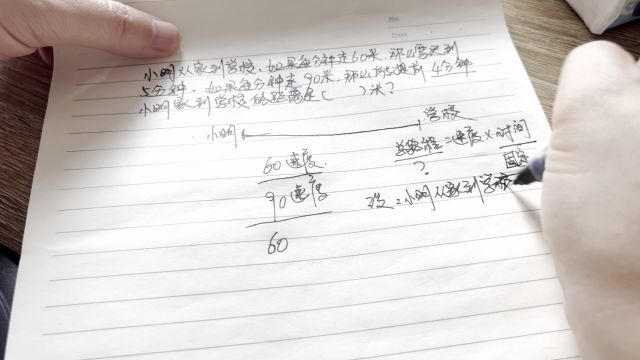 No.
Date
小明从家到学校，如果每分钟走60米，那么会迟到
5分钟，如果每分钟走90米，那么能提前4分钟
小明家到学校的距离是（ ）米？
小明 学校
总路程=速度×时间
? 固定
60速度
90速度
设：小明从家到学校
60